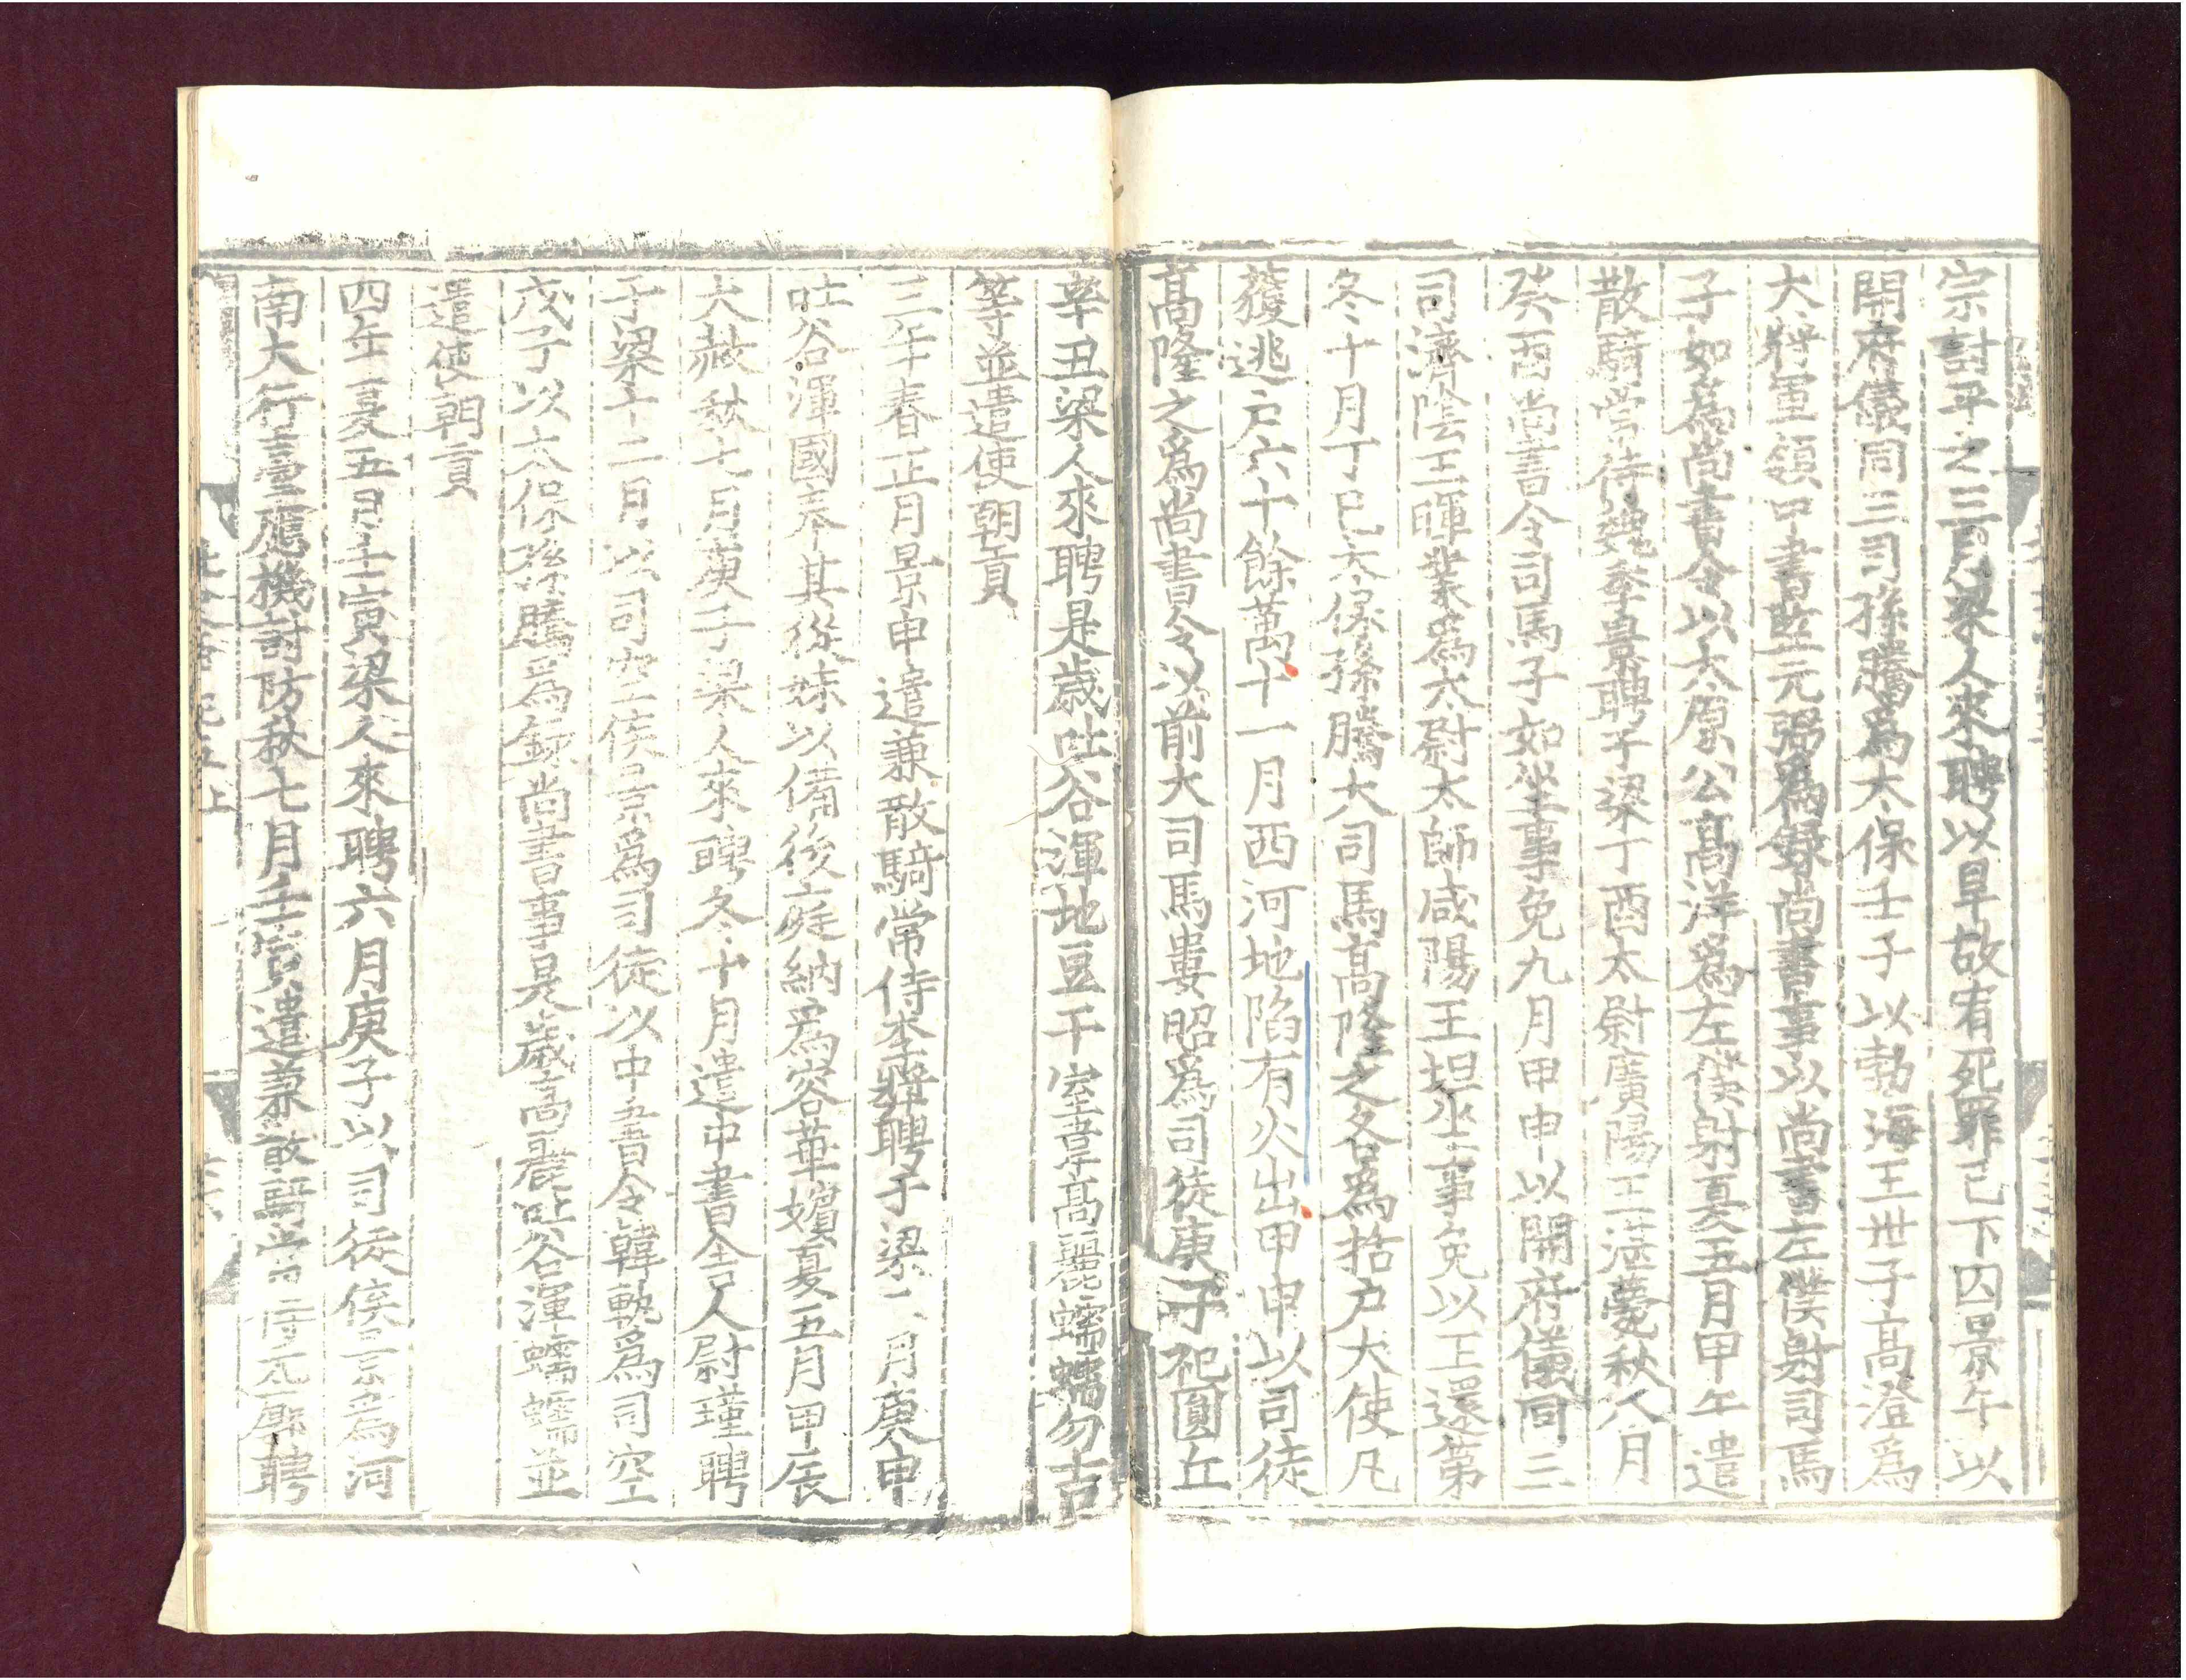 宗討平之三月梁人來聘以旱故宥死罪已下囚景午以
開府儀同三司孫騰為太保壬子以勃海王世子高澄為
大將軍領中書監元弼為錄尚書事以尚書左僕射司馬
子如為尚書令以太原公高洋為左僕射夏五月甲午遣
散騎常侍魏季景聘于梁丁酉太尉廣陽王湛薨秋八月
癸酉尚書令司馬子如坐事免九月甲申以開府儀同三
司濟陰王暉業為太尉太師咸陽王坦坐事免以王還第
冬十月丁巳太保孫騰大司馬高隆之各為括戶大使凡
獲逃戶六十餘萬十一月西河地陷有火出甲申以司徒
高隆之為尚書令以前大司馬婁昭為司徒庚子祀圓丘
辛丑梁人來聘是歲吐谷渾地豆干室韋高麗蠕蠕勿吉
等並遣使朝貢
三年春正月景申遣兼散騎常侍李獎聘于梁二月庚申
吐谷渾國奉其從妹以備後庭納為容華嬪夏五月甲辰
大赦秋七月庚子梁人來聘冬十月遣中書舍人尉瑾聘
于梁十二月以司空侯景為司徒以中書令韓軌為司空
戊子以太保孫騰為錄尚書事是歲高麗吐谷渾蠕蠕並
遣使朝貢
四年夏五月壬寅梁人來聘六月庚子以司徒侯景為河
南大行臺應機討防秋七月壬寅遣兼散騎常侍元廓聘